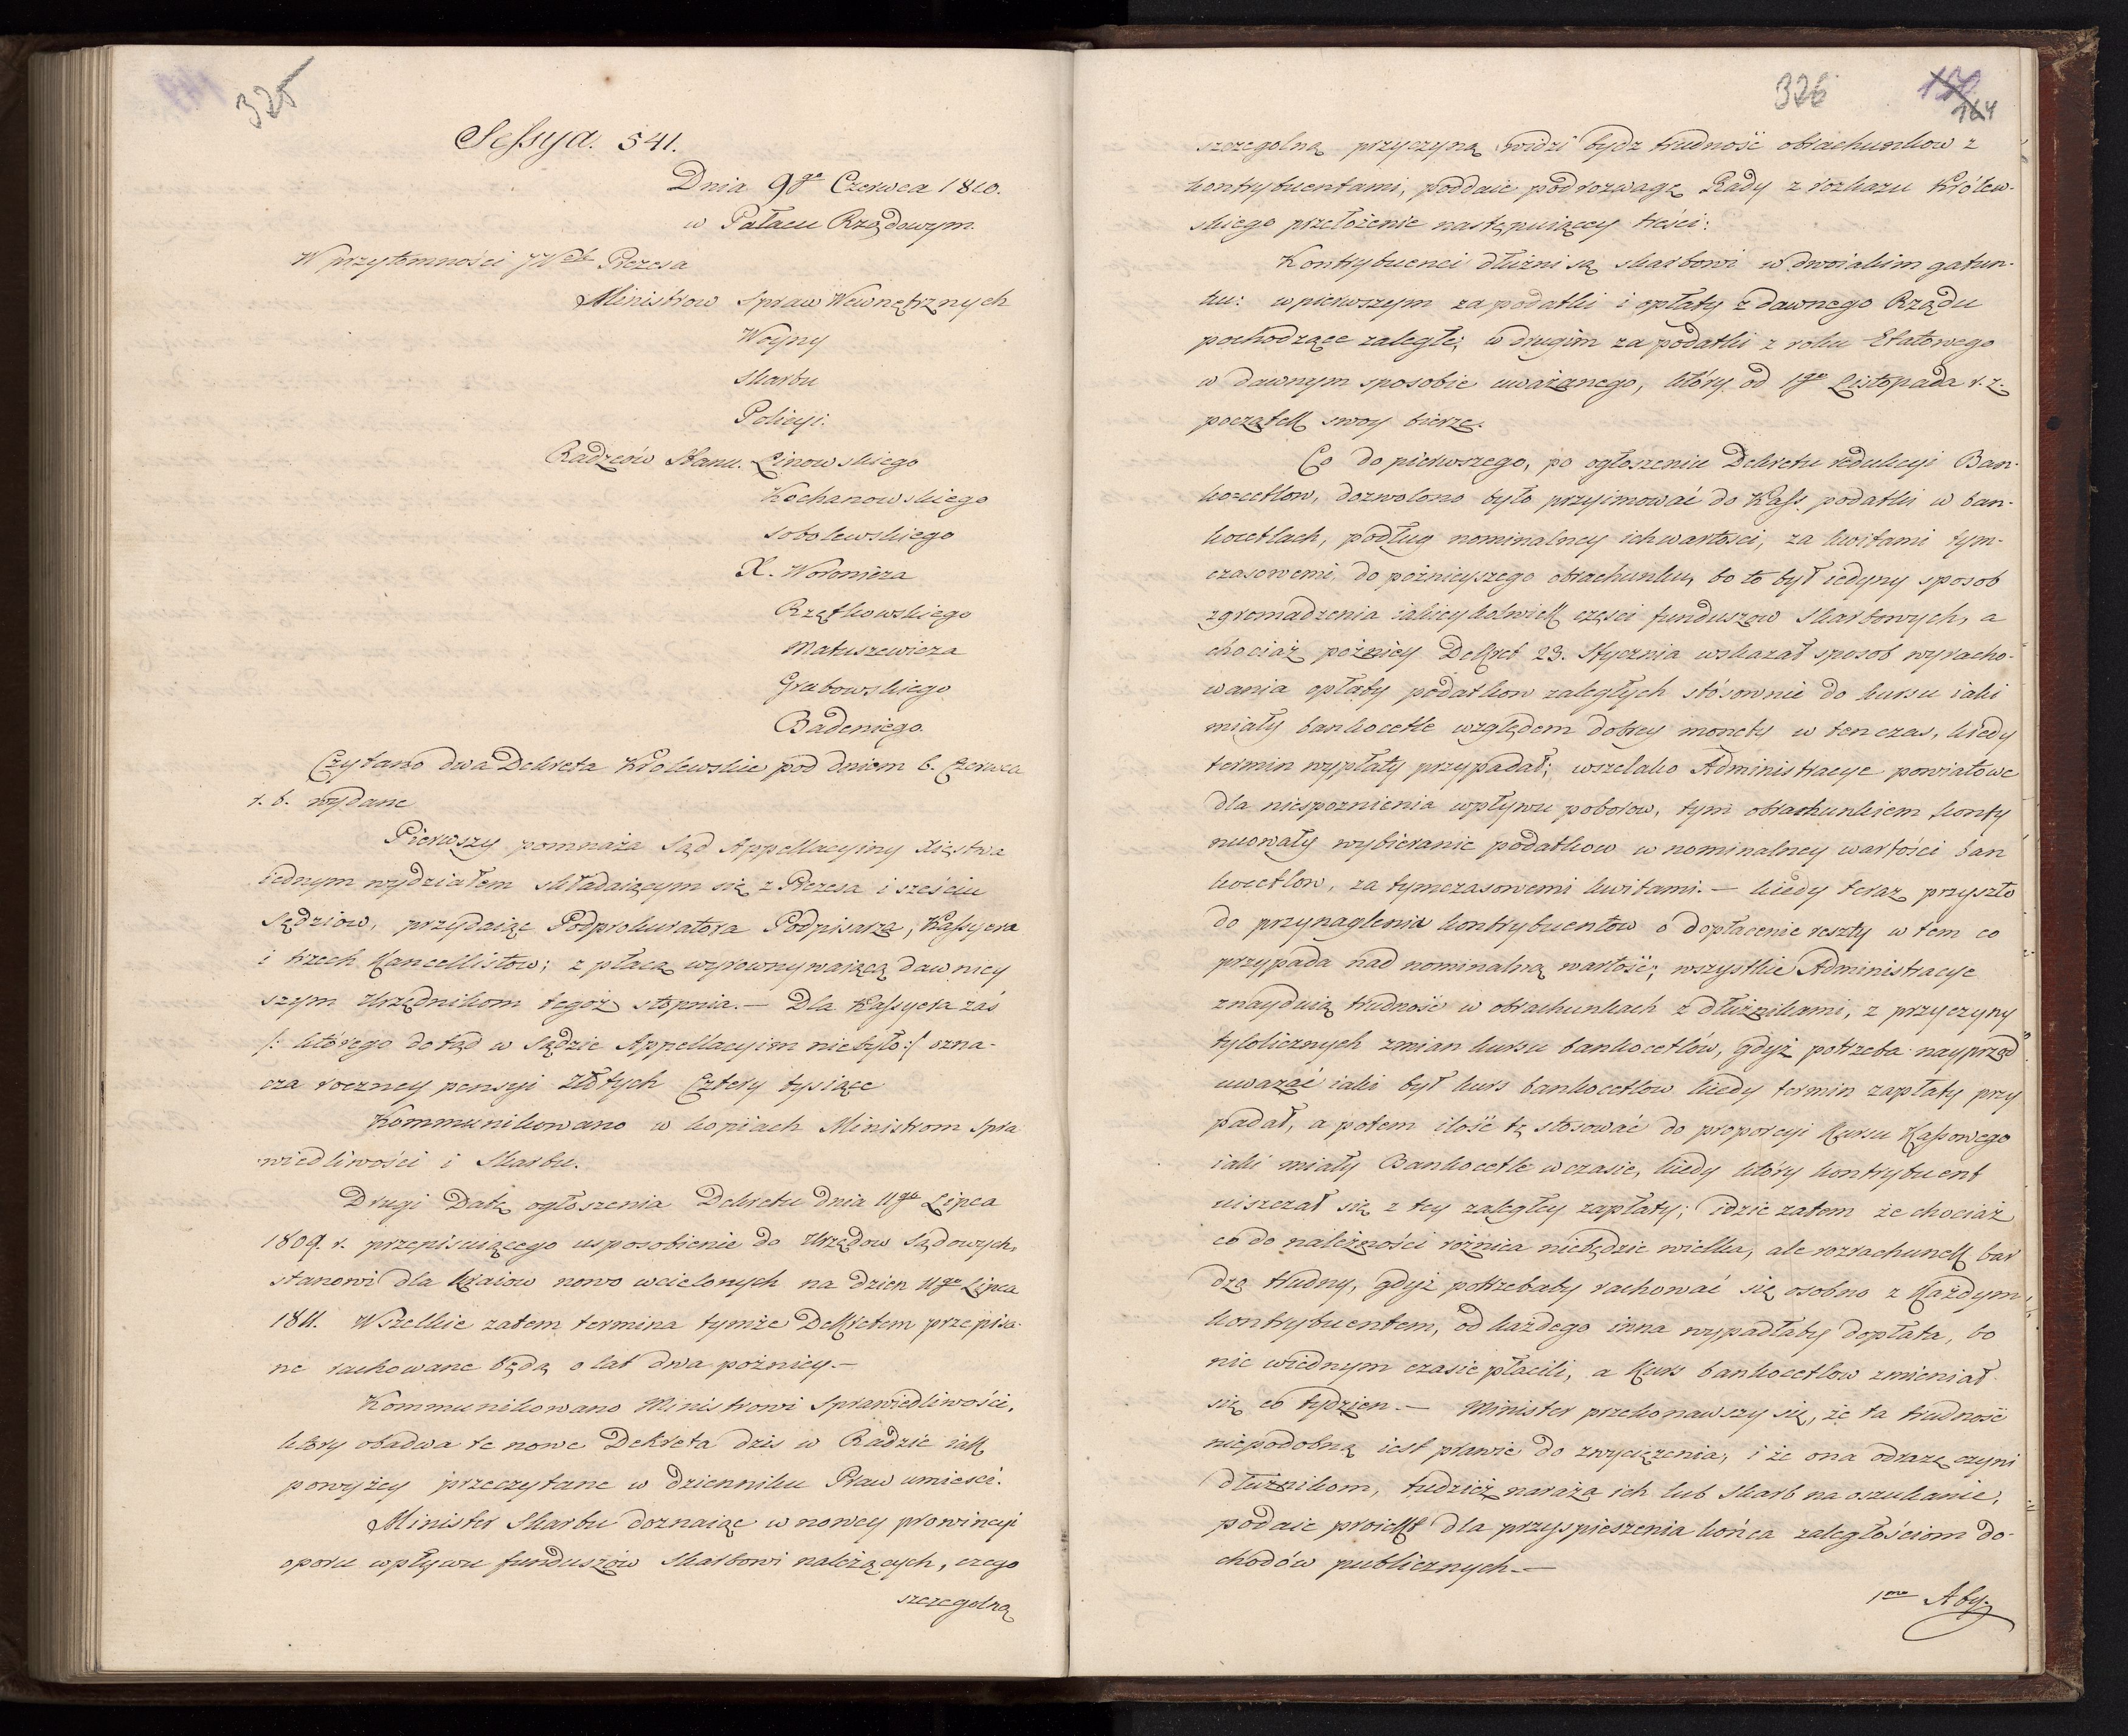 325
Sessya. 541.
Dnia 9go Czerwca 1810.
w Pałacu Rządowym.
W przytomności JWch Prezesa
Ministrow Spraw Wewnętrznych
Woyny
Skarbu
Policyi.
Radzców Stanu. Linowskiego
Kochanowskiego
Sobolewskiego
X. Woronicza
Rzętkowskiego
Matuszewicza
Grabowskiego
Badeniego.
Czytano dwa Dekreta Królewskie pod dniem 6. Czerwca
r. b. wydane
Pierwszy pomnaża Sąd Appellacyiny Xięstwa
iednym wydziałem składaiącym się z Prezesa i sześciu
Sędziow, przydaiąc Podprokuratora Podpisarza, Kassyera
i trzech Kancellistow; z płacą wyrownywaiącą dawniey
szym Urzędnikom tegoż stopnia.— Dla Kassyera zaś
/: którego dotąd w Sądzie Appellacyim niebyło :/ ozna-
cza roczney pensyi Złotych Cztery tysiące
Kommunikowano w kopiach Ministrom Spra
wiedliwości i Skarbu.
Drugi Datę ogłoszenia Dekretu dnia 11go Lipca
1809. r. przepisuiącego usposobienie do Urzędow Sądowych,
stanowi dla Kraiow nowo wcielonych na dzien 11go Lipca
1811. Wszelkie zatem termina tymże Dekretem przepisa-
ne rachowane będą o lat dwa pożniey.—
Kommunikowano Ministrowi Sprawiedliwości,
ktory obadwa te nowe Dekreta dzis w Radzie iak
powyżey przeczytane w dzienniku Praw umieści.
Minister Skarbu doznaiąc w nowey prowincyi
oporu wpływu funduszów Skarbowi należących, czego
szczegolną
326
164
szczegolną przyczyną widzi bydz trudność obrachunkow z
kontrybuentami, poddaie pod rozwagę Rady z rozkazu Królew-
skiego przełożenie następuiącey treści:
Kontrybuenci dłużni są skarbowi w dwoiakim gatun-
ku: w pierwszym za podatki i opłaty z dawnego Rządu
pochodzące zaległe; w drugim za podatki z roku Etatowego
w dawnym sposobie uważanego, który od 1go Listopada r. z.
początek swoy bierze.
Co do pierwszego, po ogłoszeniu Dekretu redukcyi Ban-
kocetlow, dozwolono było przyimować do Kass podatki w ban-
kocetlach, podług nominalney ich wartości, za kwitami tym-
czasowemi, do pożnieyszego obrachunku, bo to był iedyny sposob
zgromadzenia iakieykolwiek części funduszow Skarbowych, a
chociaż pożniey Dekret 23. Stycznia wskazał sposob wyracho-
wania opłaty podatkow zaległych stósownie do kursu iaki
miały bankocetle względem dobrey monety w ten czas, kiedy
termin wypłaty przypadał; wszelako Administracye powiatowe
dla niespoznienia wpływu poborow, tym obrachunkiem konty
nuowały wybieranie podatkow w nominalney wartości ban
kocetlow, za tymczasowemi kwitami.— kiedy teraz przyszło
do przynaglenia kontrybuentow o dopłacenie reszty w tem co
przypada nad nominalną wartość; wszystkie Administracye
znayduią trudność w obrachunkach z dłużnikami, z przyczyny
tylolicznych zmian kursu bankocetlów, gdyż potrzeba nayprzod
uważać iaki był kurs bankocetlow kiedy termin zapłaty przy
padał, a potem ilość tę stosować do proporcyi Kursu Kassowego
iaki miały Bankocetle w czasie, kiedy który kontrybuent
uiszczał się z tey zaległey zapłaty; idzie zatem że chociaż
co do należności różnica niebędzie wielka, ale rozrachunek bar
dzo trudny, gdyż potrzebaby rachować się osobno z Każdym
kontrybuentem, od każdego inna wypadłaby dopłata, bo
nie wiednym czasie płacili, a Kurs bankocetlow zmieniał
się co tydzien.— Minister przekonawszy się, że ta trudność
niepodobną iest prawie do zwyciężenia, i że ona odrazę czyni
dłużnikom, tudzież naraża ich lub Skarb na oszukanie,
podaie proiekt dla przyspieszenia końca zaległościom do-
chodów publicznych.—
1mo Aby